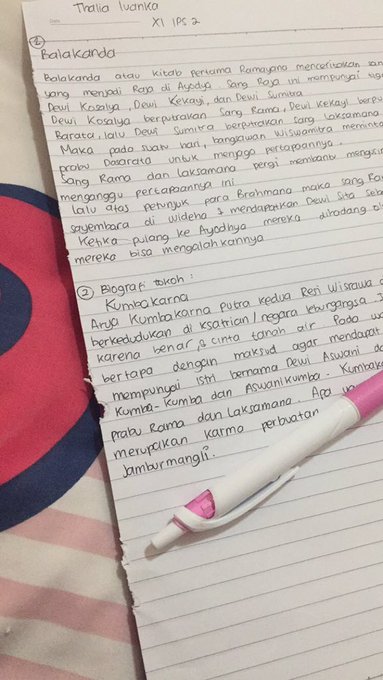 Thalia Ivanka
Date
XI IPS 2
①
Balakanda
Balakanda atau kitab pertama Ramayana menceritakan
yang menjadi Raja di Ayodya. Sang Raja ini mempunyai
Dewi Kosalya, Dewi Kekayi, dan Dewi Sumitra
Dewi Kosalya berputrakan Sang Rama, Dewi Kekayi
Barata, lalu Dewi Sumitra berputrakan sang Laksamana.
Maka pada suatu hari, bangsawan Wiswamitra
prabu Dasarata untuk menjaga pertapaannya.
Sang Rama dan Laksamana pergi membantu
mengganggu pertapaannya ini.
lalu atas petunjuk para Brahmana maka sang
sayembara di Wideha & mendapatkan Dewi Sita
Ketika pulang ke Ayodhya mereka dihadang
mereka bisa mengalahkannya
② Biografi tokoh :
Kumbakarna
Arya Kumbakarna putra kedua Resi Wisrawa
berkedudukan di Ksatrian / negara leburgangsa.
karena benar & cinta tanah air. Pada
bertapa dengan maksud agar mendapat
mempunyai istri bernama Dewi Aswani
Kumba-Kumba dan Aswanikumba.
prabu Rama dan Laksamana. Apa
merupakan karma perbuatan
Jambumangli.